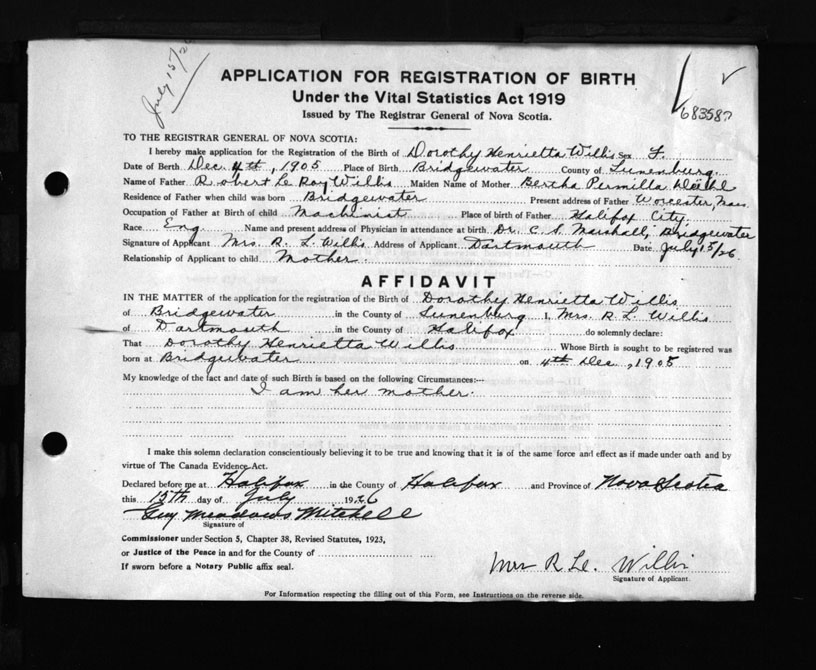 July 15/26
APPLICATION FOR REGISTRATION OF BIRTH
Under the Vital Statistics Act 1919
Issued by The Registrar General of Nova Scotia.
683587
TO THE REGISTRAR GENERAL OF NOVA SCOTIA:
I hereby make application for the Registration of the Birth of Dorothy Henrietta Willis Sex F.
Date of Berth Dec. 4th, 1905 Place of Birth Bridgewater County of Lunenburg.
Name of Father Robert Le Roy Willis Maiden Name of Mother Bertha Permilla
Residence of Father when child was born Bridgewater Present address of Father Worcester, Mass.
Occupation of Father at Birth of child Machinist Place of birth of Father Halifax City.
Race Eng. Name and present address of Physician in attendance at birth Dr. C. S. Marshall, Bridgewater
Signature of Applicant Mrs. R. L. Willis Address of Applicant Dartmouth Date July 15/26.
Relationship of Applicant to child Mother.
AFFIDAVIT
IN THE MATTER of the application for the registration of the Birth of Dorothy Henrietta Willis
of Bridgewater in the County of Lunenburg I, Mrs. R. L. Willis
of Dartmouth in the County of Halifax do solemnly declare:
That Dorothy Henrietta Willis Whose Birth is sought to be registered was
born at Bridgewater on 4th Dec., 1905
My knowledge of the fact and date of such Birth is based on the following Circumstances:—
I am her mother.
I make this solemn declaration conscientiously believing it to be true and knowing that it is of the same force and effect as if made under oath and by
virtue of The Canada Evidence Act.
Declared before me at Halifax in the County of Halifax and Province of Nova Scotia
this 15th day of July 1926
Guy Meadows Mitchell
Signature of
Commissioner under Section 5, Chapter 38, Revised Statutes, 1923,
or Justice of the Peace in and for the County of
If sworn before a Notary Public affix seal.
Mrs R. Le. Willis
Signature of Applicant.
For Information respecting the filling out of this Form, see Instructions on the reverse side.